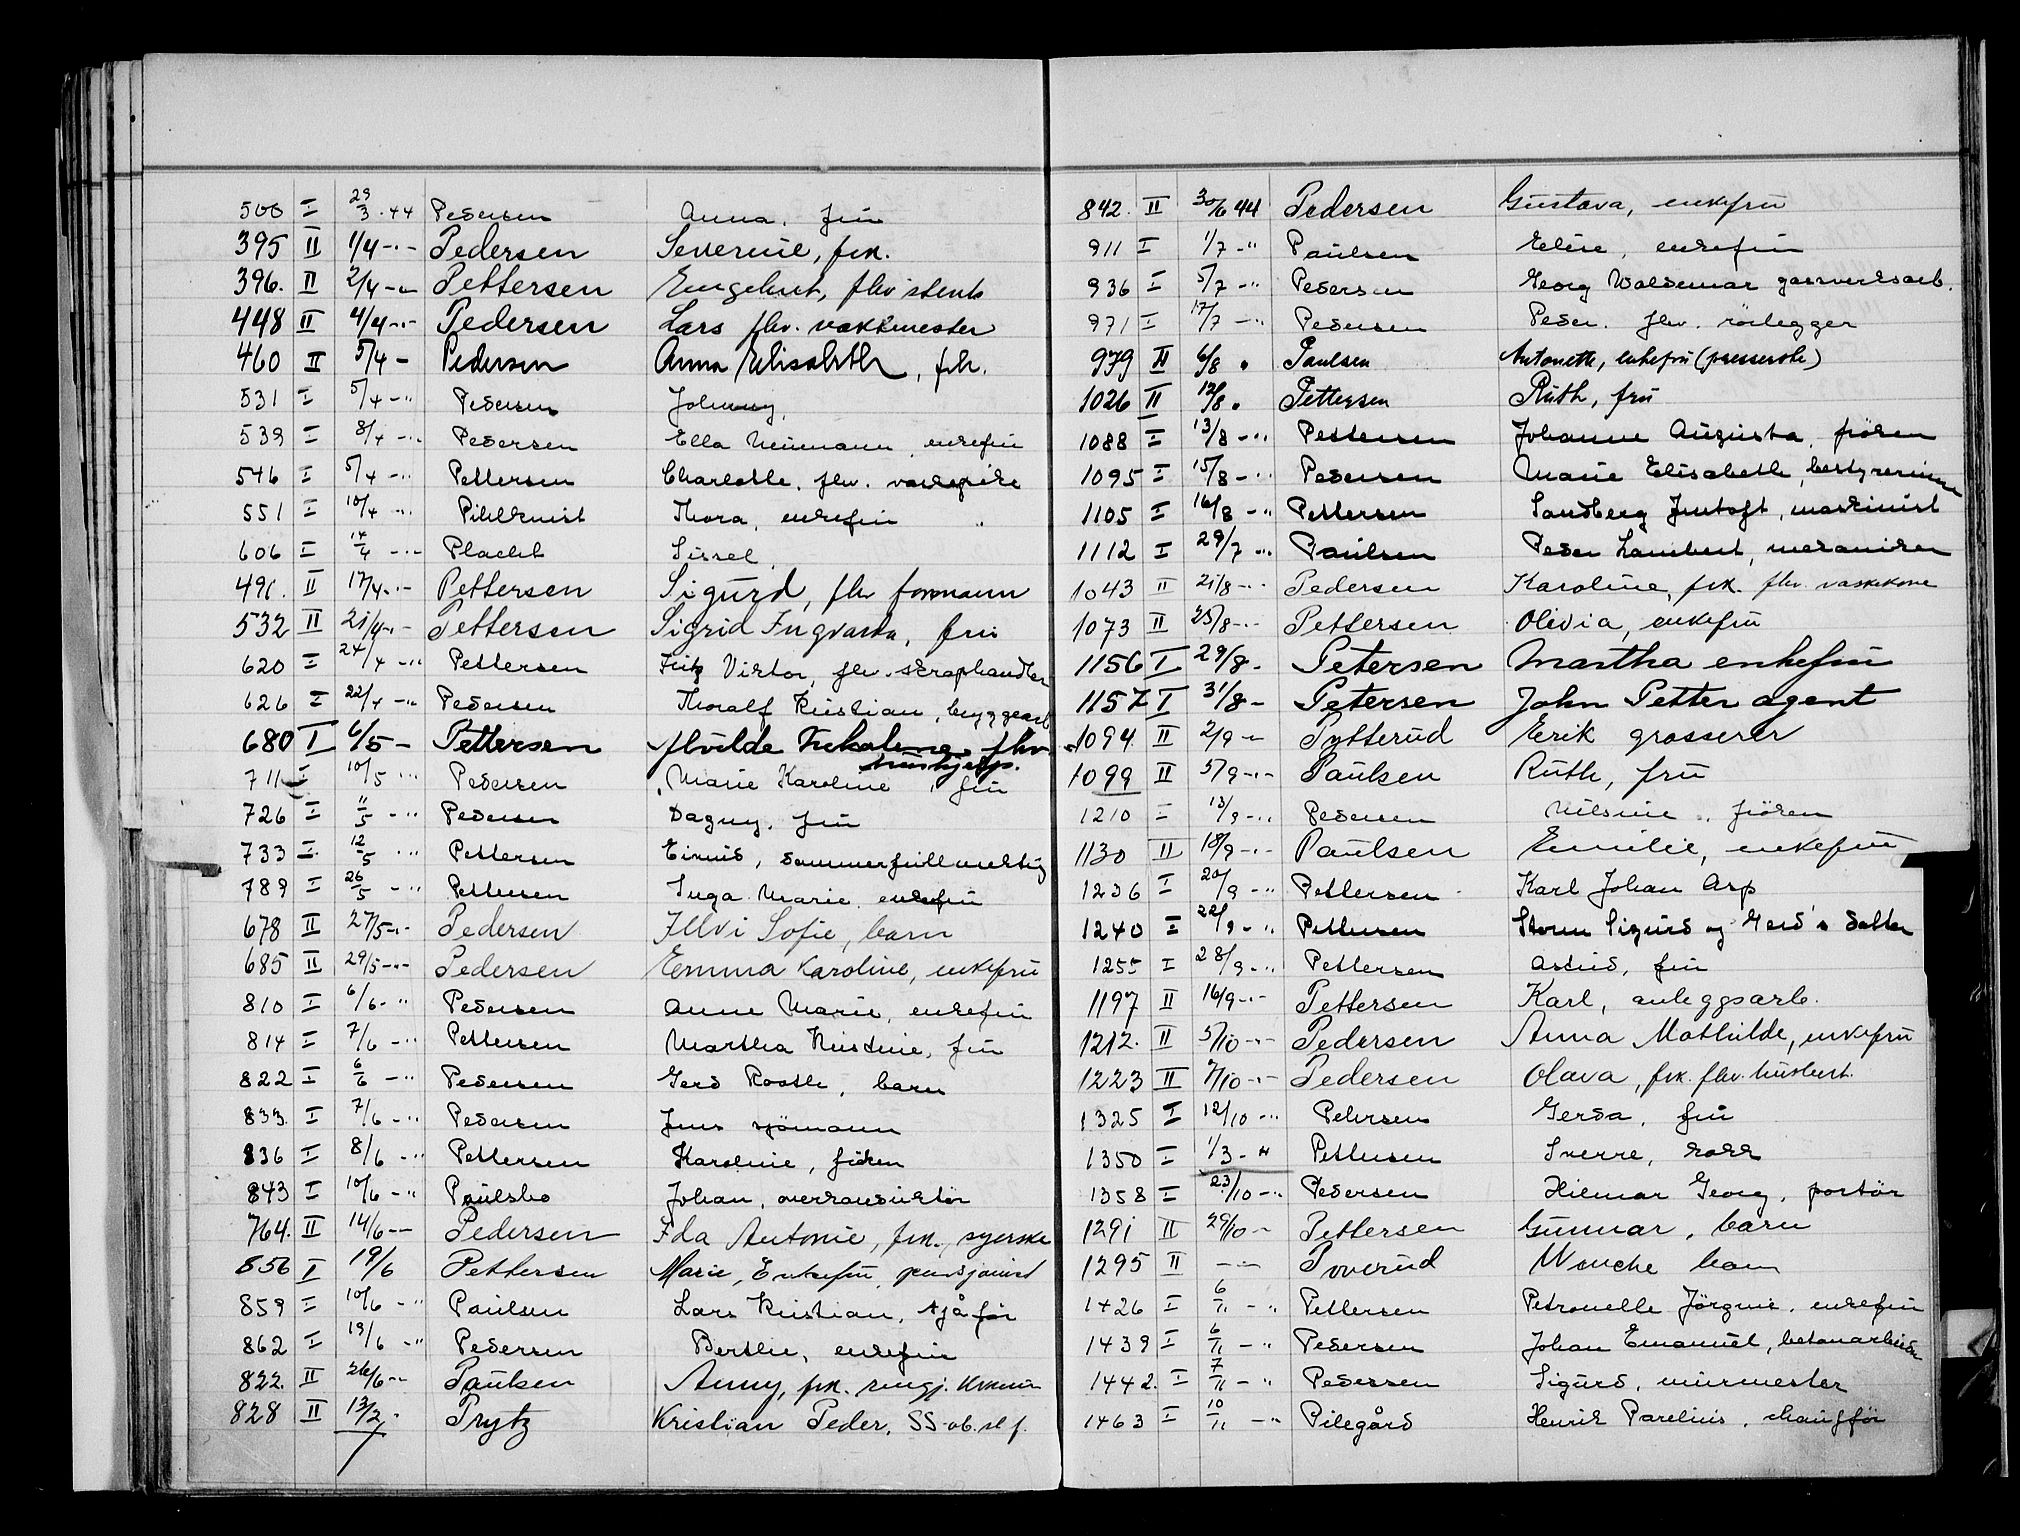 500 I 29/3 · 44 Pedersen Anna, fru
395 II 1/4 -"- Pedersen Severine, frk.
396. II 2/4 -"- Pettersen Engebret, fhv
448 II 4/4 -"- Pedersen Lars fhv. vaktmester
460 II 5/4 - Pedersen Anna Elisabeth, frk.
531 I 5/4 -" Pedersen Johnny,
539 I 8/4 -"- Pedersen Ella Neumann, enkefru
546 I 5/4 -" Pettersen Charlotte, fhv. vaskepike
551 I 10/4 -" Pihlkvist Thora, enkefru "
606 I 14/4 -"- Placht Sissel,
491. II 17/4 -"- Pettersen Sigurd, fhv formann
532 II 21/4 -"- Pettersen Sigrid Ingvarda, fru
620 I 24/4 -"- Pettersen Fritz Viktor, fhv. skraphandler
626 I 22/4 -"- Pedersen Thoralf Kristian, bryggearb
680 I 6/5 - Pettersen Alvilde Nikoline, fhv
hushjelp.
711 I 10/5 -" Pedersen Marie Karoline, fru
726 I 11/5 -" Pedersen Dagny, fru
733 I 12/5 -" Pettersen Eivind, dommerfullmektig
789 I 26/5 -" Pettersen Inga Marie, enkefru
678 II 27/5 -"- Pedersen Illvi Sofie, barn
685 II 29/5 -"- Pedersen Emma Karoline, enkefru
810 I 6/6 -" Pedersen Anne Marie, enkefru
814 I 7/6 -" Pettersen Martha Kristine, fru
822 I 6/6 -" Pedersen Gerd, barn
833. I 7/6 -" Pedersen Jens sjömann
836 I 8/6 -" Pettersen Karoline, fröken
843 I 10/6 -" Paulsbo Johan, overkonduktör
764. II 14/6 -- Pedersen Ida Antonie, frk., syerske
856 I 19/6 Pettersen Marie, Enkefru, pensjonist
859 I 10/6 -" Paulsen Lars Kristian, sjåför
862 I 19/6 -" Pedersen Berthe, enkefru
822. II 26/6 -- Paulsen Anny, frk. rengj. kvinne
828 II 13/2 - Prytz Kristian Peder, SS-ob.st f.
842. II 30/6 44 Pedersen Gustava, enkefru
911 I 1/7 -" Paulsen Eline, enkefru
936 I 5/7 -" Pedersen Georg Waldemar gassverksarb.
971 I 17/7 -" Pedersen Peder. fhv. rörlegger
979 II 6/8 " Paulsen Antonette, enkefru (presserske)
1026 II 12/8 " Pettersen Ruth, fru
1088 I 13/8 -" Pettersen Johanne Augusta, fröken
1095 I 15/8 -" Pedersen Marie Elisabeth, bestyrerinne
1105 I 16/8 -" Pettersen Sandberg Juntoft, maskinist
1112 I 29/7 -" Paulsen Peder Lambert, mekaniker
1043 II 21/8 -"- Pedersen Karoline, frk. fhv. vaskekone
1073 II 25/8 -"- Pettersen Olivia, enkefru
1156 I 29/8 - Petersen Martha enkefru
1157 I 31/8 - Petersen John Petter agent
1094. II 2/9 - Pytterud Erik grosserer
1099 II 5/9 -"- Paulsen Ruth, fru
1210 I 13/9 -" Pedersen Nilsine, fröken
1130 II 18/9 -"- Paulsen Emilie, enkefru
1236 I 20/9 -" Pettersen Karl Johan Asp
1240 I 22/9 -" Pettersen Storm Sigurd og Gerd's datter
1255 I 28/9 -" Pettersen Astrid, fru
1197 II 16/9 -"- Pettersen Karl, anleggsarb.
1212. II 5/10 -"- Pedersen Anna Mathilde, enkefru
1223 II 7/10 -"- Pedersen Olava, frk. fhv. husbest.
1325 I 12/10 -" Petersen Gerda, fru
1350 I 1/3 -" Pettersen Sverre, kokk
1358 I 23/10 -" Pedersen Hilmar Georg, portör
1291 II 29/10 -" Pettersen Gunnar, barn
1295 II -"- Poverud Wenche barn
1426 I 6/11 -" Pettersen Petronelle Jörgine, enkefru
1439 I 6/11 -" Pedersen Johan Emanuel, betonarbeider
1442. I 7/11 -" Pedersen Sigurd, murmester
1463 I 10/11 -" Pilegård Henrik Parelius, chaufför